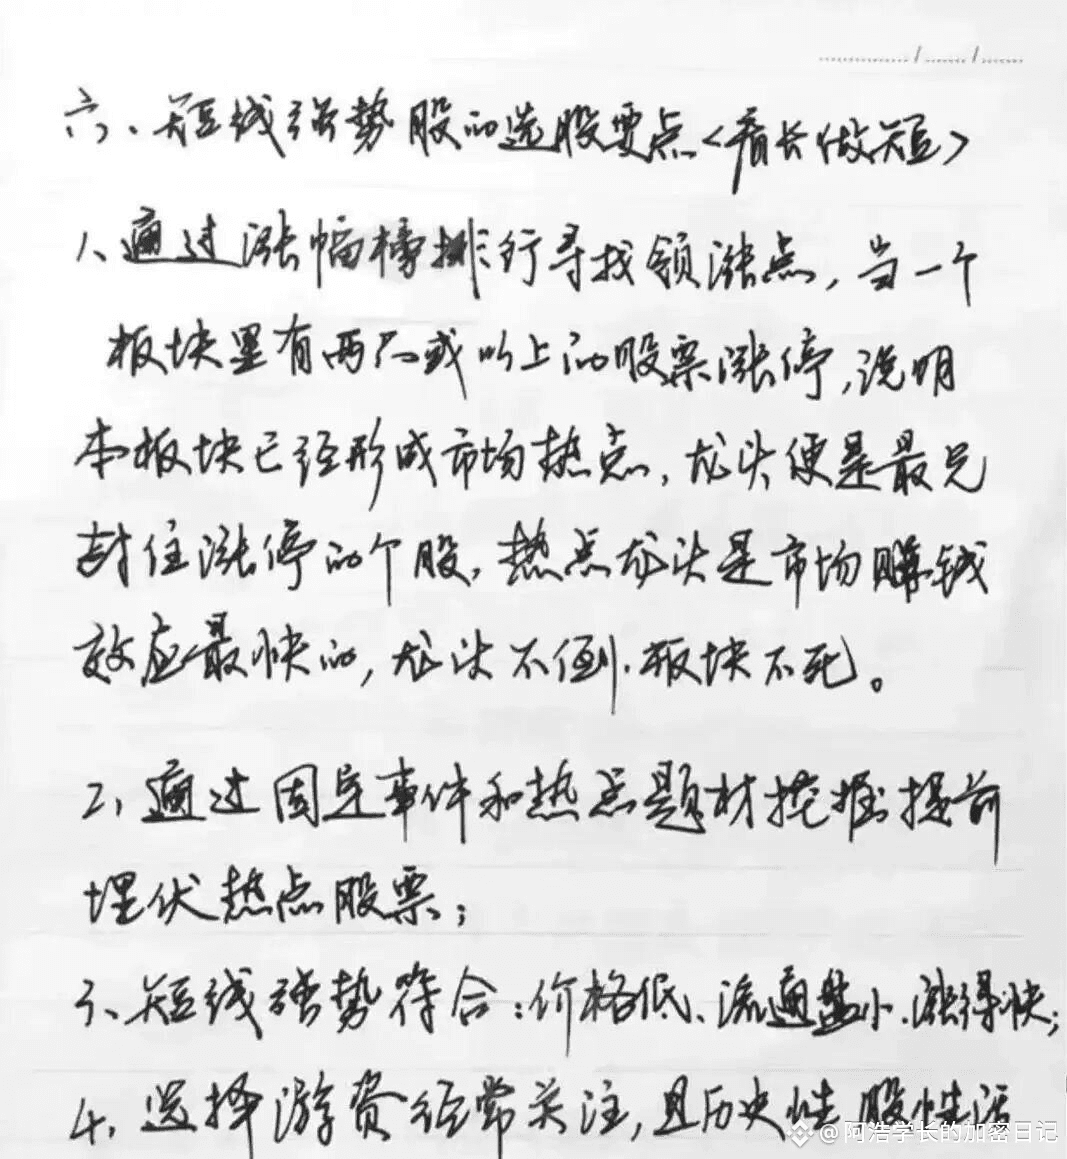 六、短线强势股的选股要点<看长做短>
1、通过涨幅榜排行寻找领涨点,当一个
板块里有两只或以上的股票涨停,说明
本板块已经形成市场热点,龙头便是最先
封住涨停的个股,热点龙头是市场赚钱
效应最快的,龙头不倒.板块不死。
2、通过固定事件和热点题材挖掘提前
埋伏热点股票;
3、短线强势符合:价格低、流通盘小.涨得快;
4、选择游资经常关注,且历史性股性活
@阿浩学长的加密日记